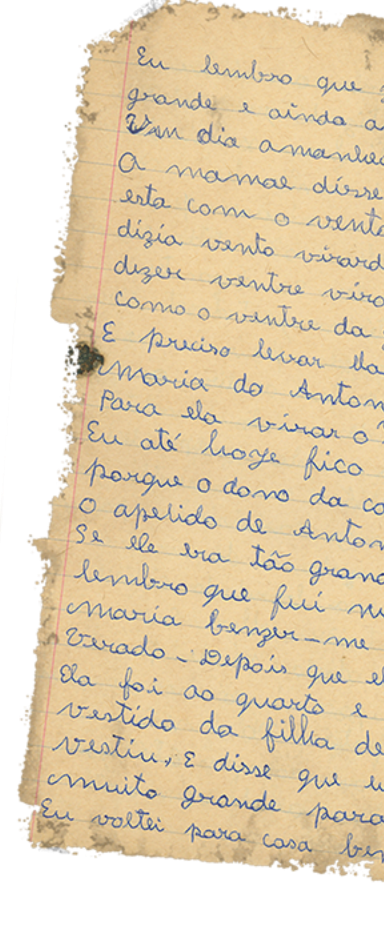 Eu lembro que
grande e ainda a
Um dia amanhe
A mamae disse
esta com o vent
dizia vento virad
dizer ventre vir
como o ventre da
E preciso levar
Maria do Anton
Para ela virar o
Eu até hoje fico
porque o dono da ca
O apelido de Anton
Se ele era tão grand
lembro que fui n
maria benzer-me
Verado - Depois que e
Ela foi ao quarto e
vestido da filha de
vestiu, E disse que
muito grande para
Eu voltei para casa be